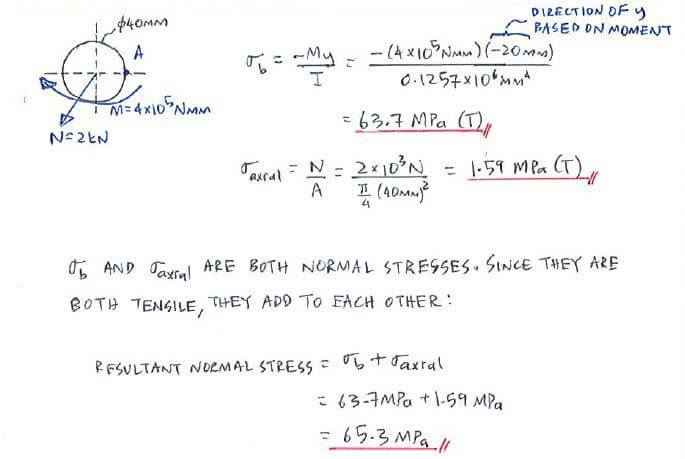 DIRECTION OF y
BASED ON MOMENT
ϕ40MM
A
M=4x10⁵NMM
N=2kN
σb = -My/I = -(4x10⁵NMM)(-20MM)/0.1257x10⁶MM⁴
= 63.7 MPa (T)
σaxial = N/A = 2x10³N/π/4 (40MM)² = 1.59 MPa (T)
σb AND σaxial ARE BOTH NORMAL STRESSES. SINCE THEY ARE
BOTH TENSILE, THEY ADD TO EACH OTHER:
RESULTANT NORMAL STRESS = σb + σaxial
= 63.7MPa + 1.59 MPa
= 65.3 MPa